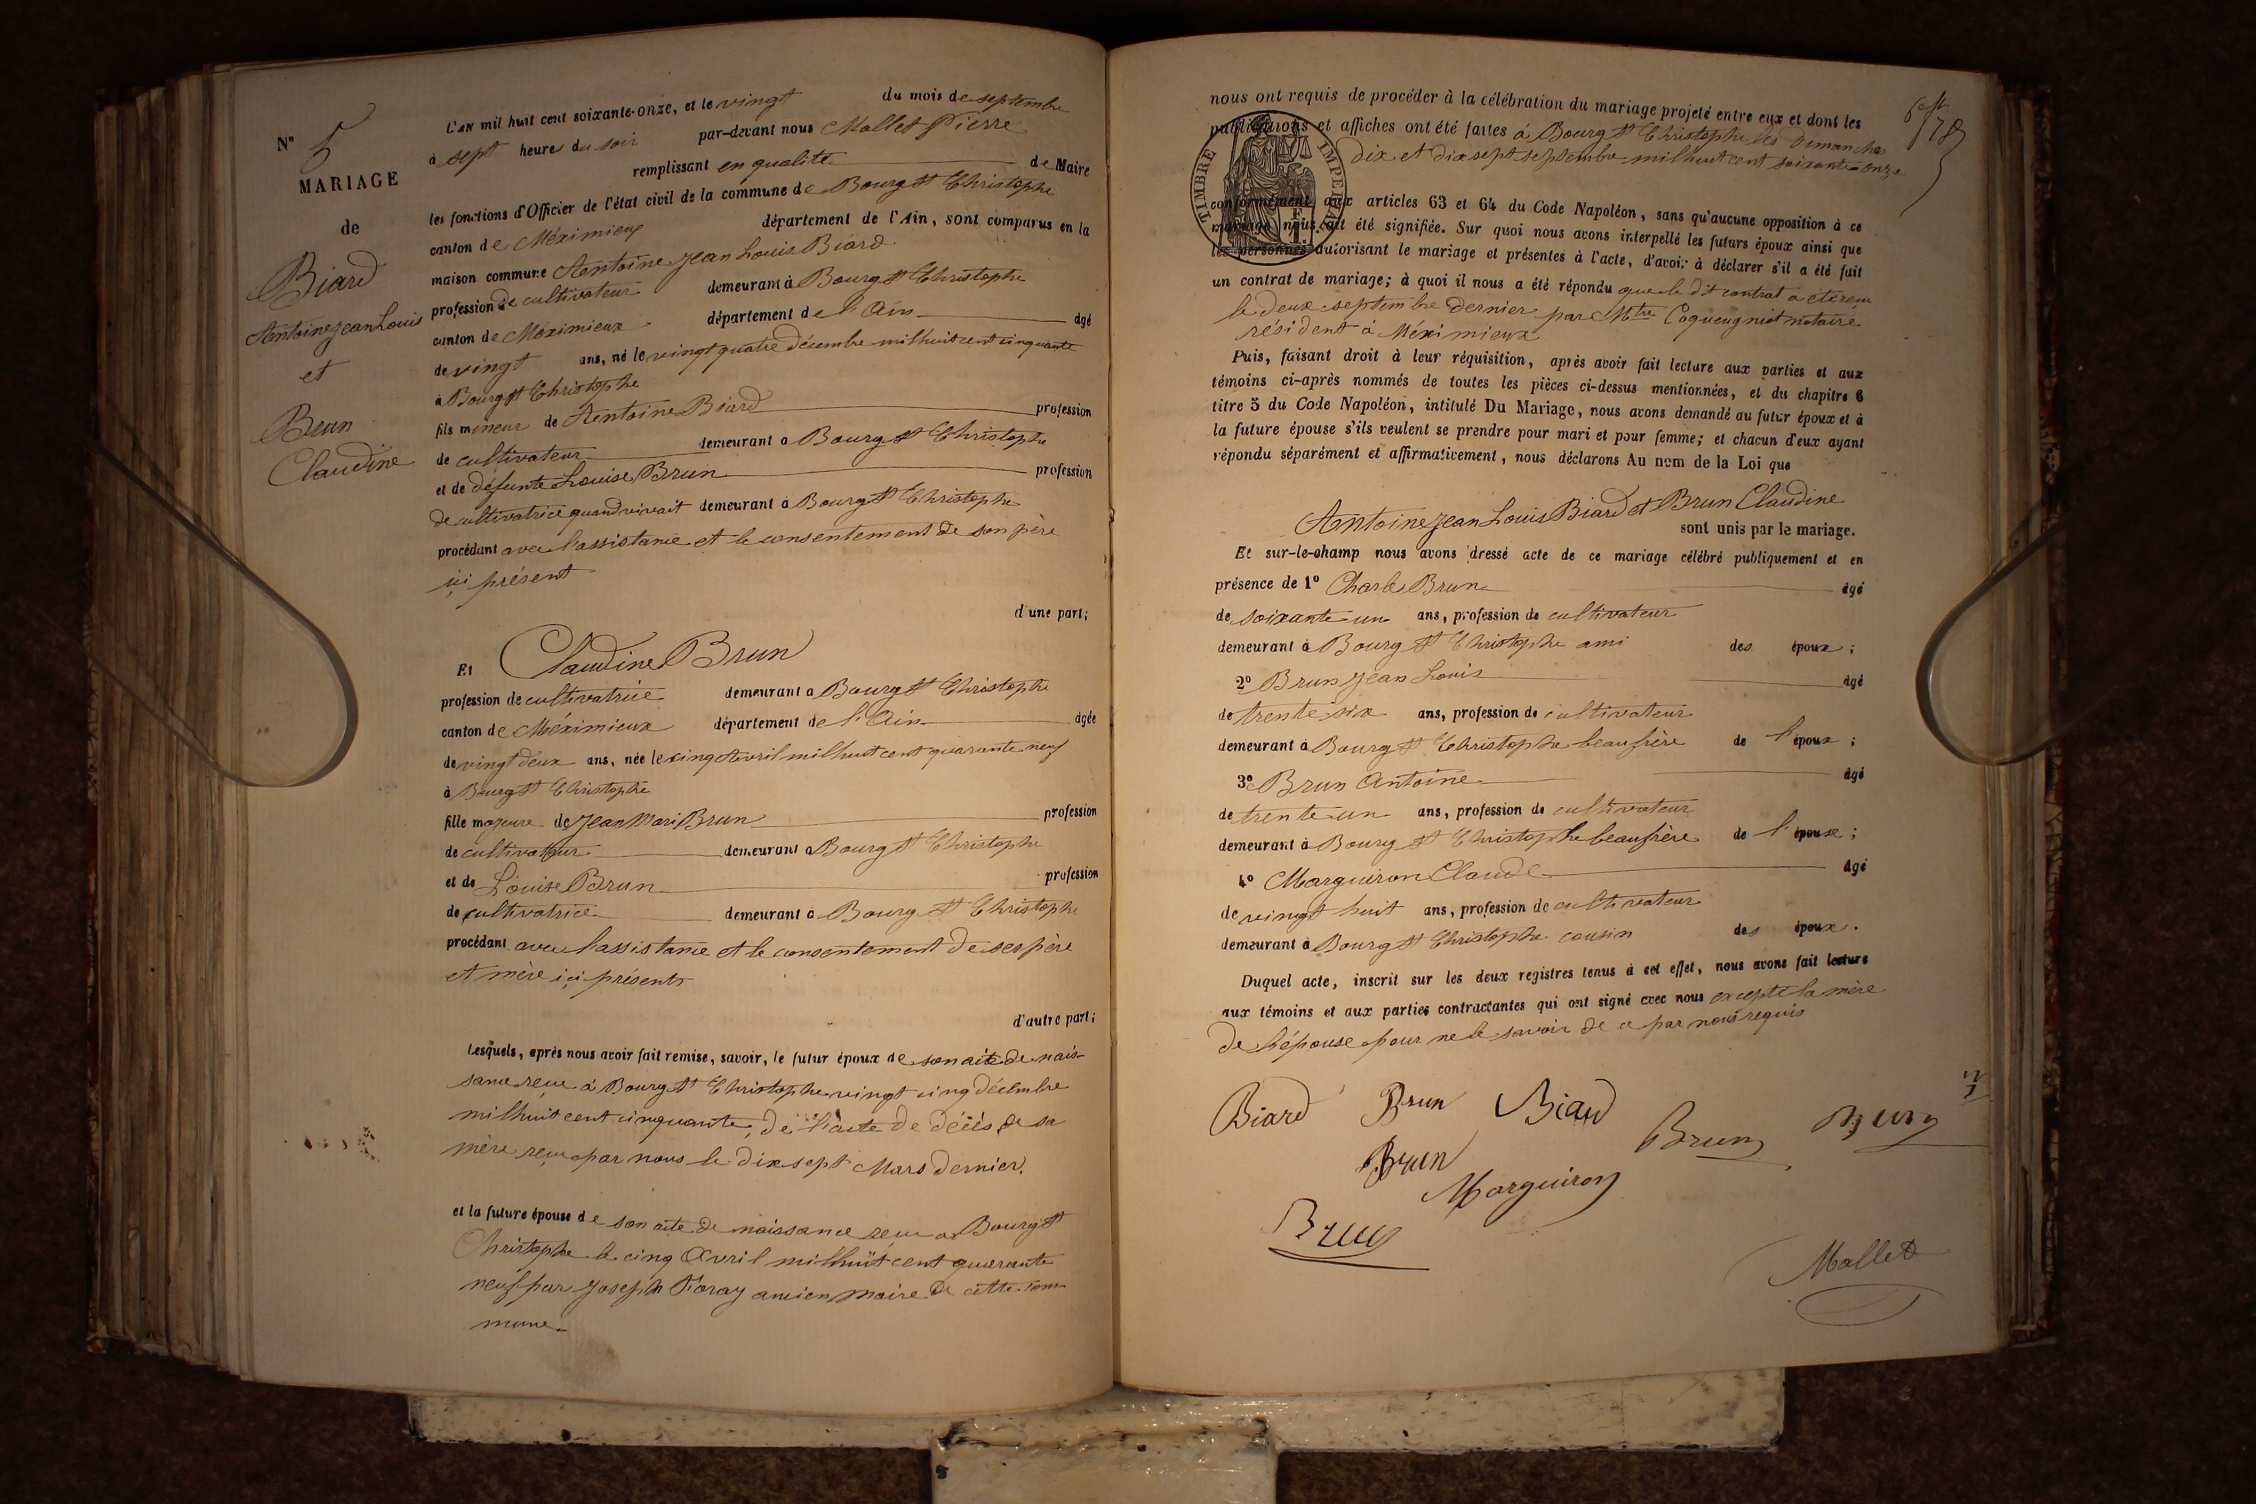 N° 5
MARIAGE
de
Biard
Antoine Jean Louis
et
Brun
Claudine
L'AN mil huit cent soixante-onze, et le vingt du mois de septembre
à sept heures du soir par-devant nous Mallet Pierre
remplissant en qualité de Maire
les fonctions d'Officier de l'état civil de la commune de Bourg St Christophe
canton de Méximieux département de l'Ain, sont comparus en la
maison commune Antoine Jean Louis Biard
profession de cultivateur demeurant à Bourg St Christophe
canton de Méximieux département de l'Ain âgé
de vingt ans, né le vingt quatre décembre mil huit cent cinquante
à Bourg St Christophe
fils mineur de Antoine Biard profession
de cultivateur demeurant à Bourg St Christophe
et de défunte Louise Brun profession
de cultivatrice quand vivait demeurant à Bourg St Christophe
procédant avec l'assistance et le consentement de son père
ici présent
d'une part;
Et Claudine Brun
profession de cultivatrice demeurant à Bourg St Christophe
canton de Méximieux département de l'Ain âgée
de vingt deux ans, née le cinq Avril mil huit cent quarante neuf
à Bourg St Christophe
fille majeure de Jean Mari Brun profession
de cultivateur demeurant à Bourg St Christophe
et de Louise Brun profession
de cultivatrice demeurant à Bourg St Christophe
procédant avec l'assistance et le consentement de ses père
et mère ici présents
d'autre part;
Lesquels, après nous avoir fait remise, savoir, le futur époux de son acte de nais-
sance reçu à Bourg St Christophe vingt cinq décembre
mil huit cent cinquante, de l'acte de décès de sa
mère reçu par nous le dix sept Mars dernier.
et la future épouse de son acte de naissance reçu à Bourg St
Christophe le cinq Avril mil huit cent quarante
neuf par Joseph Foray ancien maire de cette com
mune
nous ont requis de procéder à la célébration du mariage projeté entre eux et dont les
publications et affiches ont été faites à Bourg St Christophe les Dimanche
dix et dix sept septembre mil huit cent soixante onze
TIMBRE IMPERIAL
conformément aux articles 63 et 64 du Code Napoléon, sans qu'aucune opposition à ce
mariage nous ait été signifiée. Sur quoi nous avons interpellé les futurs époux ainsi que
les personnes autorisant le mariage et présentes à l'acte, d'avoir à déclarer s'il a été fait
un contrat de mariage; à quoi il nous a été répondu que le dit contrat a été reçu
le deux septembre dernier par Mtre Coqueugniot notaire
résident à Méximieux
Puis, faisant droit à leur réquisition, après avoir fait lecture aux parties et aux
témoins ci-après nommés de toutes les pièces ci-dessus mentionnées, et du chapitre 6
titre 5 du Code Napoléon, intitulé Du Mariage, nous avons demandé au futur époux et à
la future épouse s'ils veulent se prendre pour mari et pour femme; et chacun d'eux ayant
répondu séparément et affirmativement, nous déclarons Au nom de la Loi que
Antoine Jean Louis Biard et Brun Claudine
sont unis par le mariage.
Et sur-le-champ nous avons dressé acte de ce mariage célébré publiquement et en
présence de 1° Charle Brun âgé
de soixante un ans, profession de cultivateur
demeurant à Bourg St Christophe ami des époux;
2° Brun Jean Louis âgé
de trente six ans, profession de cultivateur
demeurant à Bourg St Christophe beaufrère de l'époux;
3° Brun Antoine âgé
de trente un ans, profession de cultivateur
demeurant à Bourg St Christophe beaufrère de l'époux;
4° Marguiron Claude âgé
de vingt huit ans, profession de cultivateur
demeurant à Bourg St Christophe cousin des époux.
Duquel acte, inscrit sur les deux registres tenus à cet effet, nous avons fait lecture
aux témoins et aux parties contractantes qui ont signé avec nous excepté la mère
de l'épouse pour ne le savoir de ce par nous requis
Biard Brun Biard
Brun Brun
Brun Marguiron
Brun
Mallet